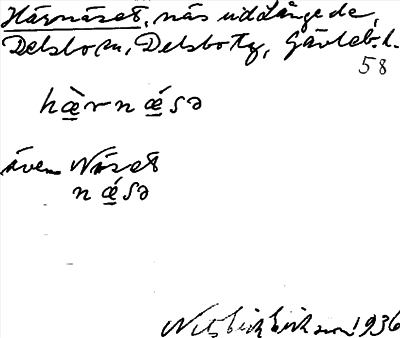 Härnäset, näs vid Långede,
Delsbo sn, Delsbo tg, Gävleb. l.
58
hæ̀rnǽsə
även Näset
nǽsə
1936